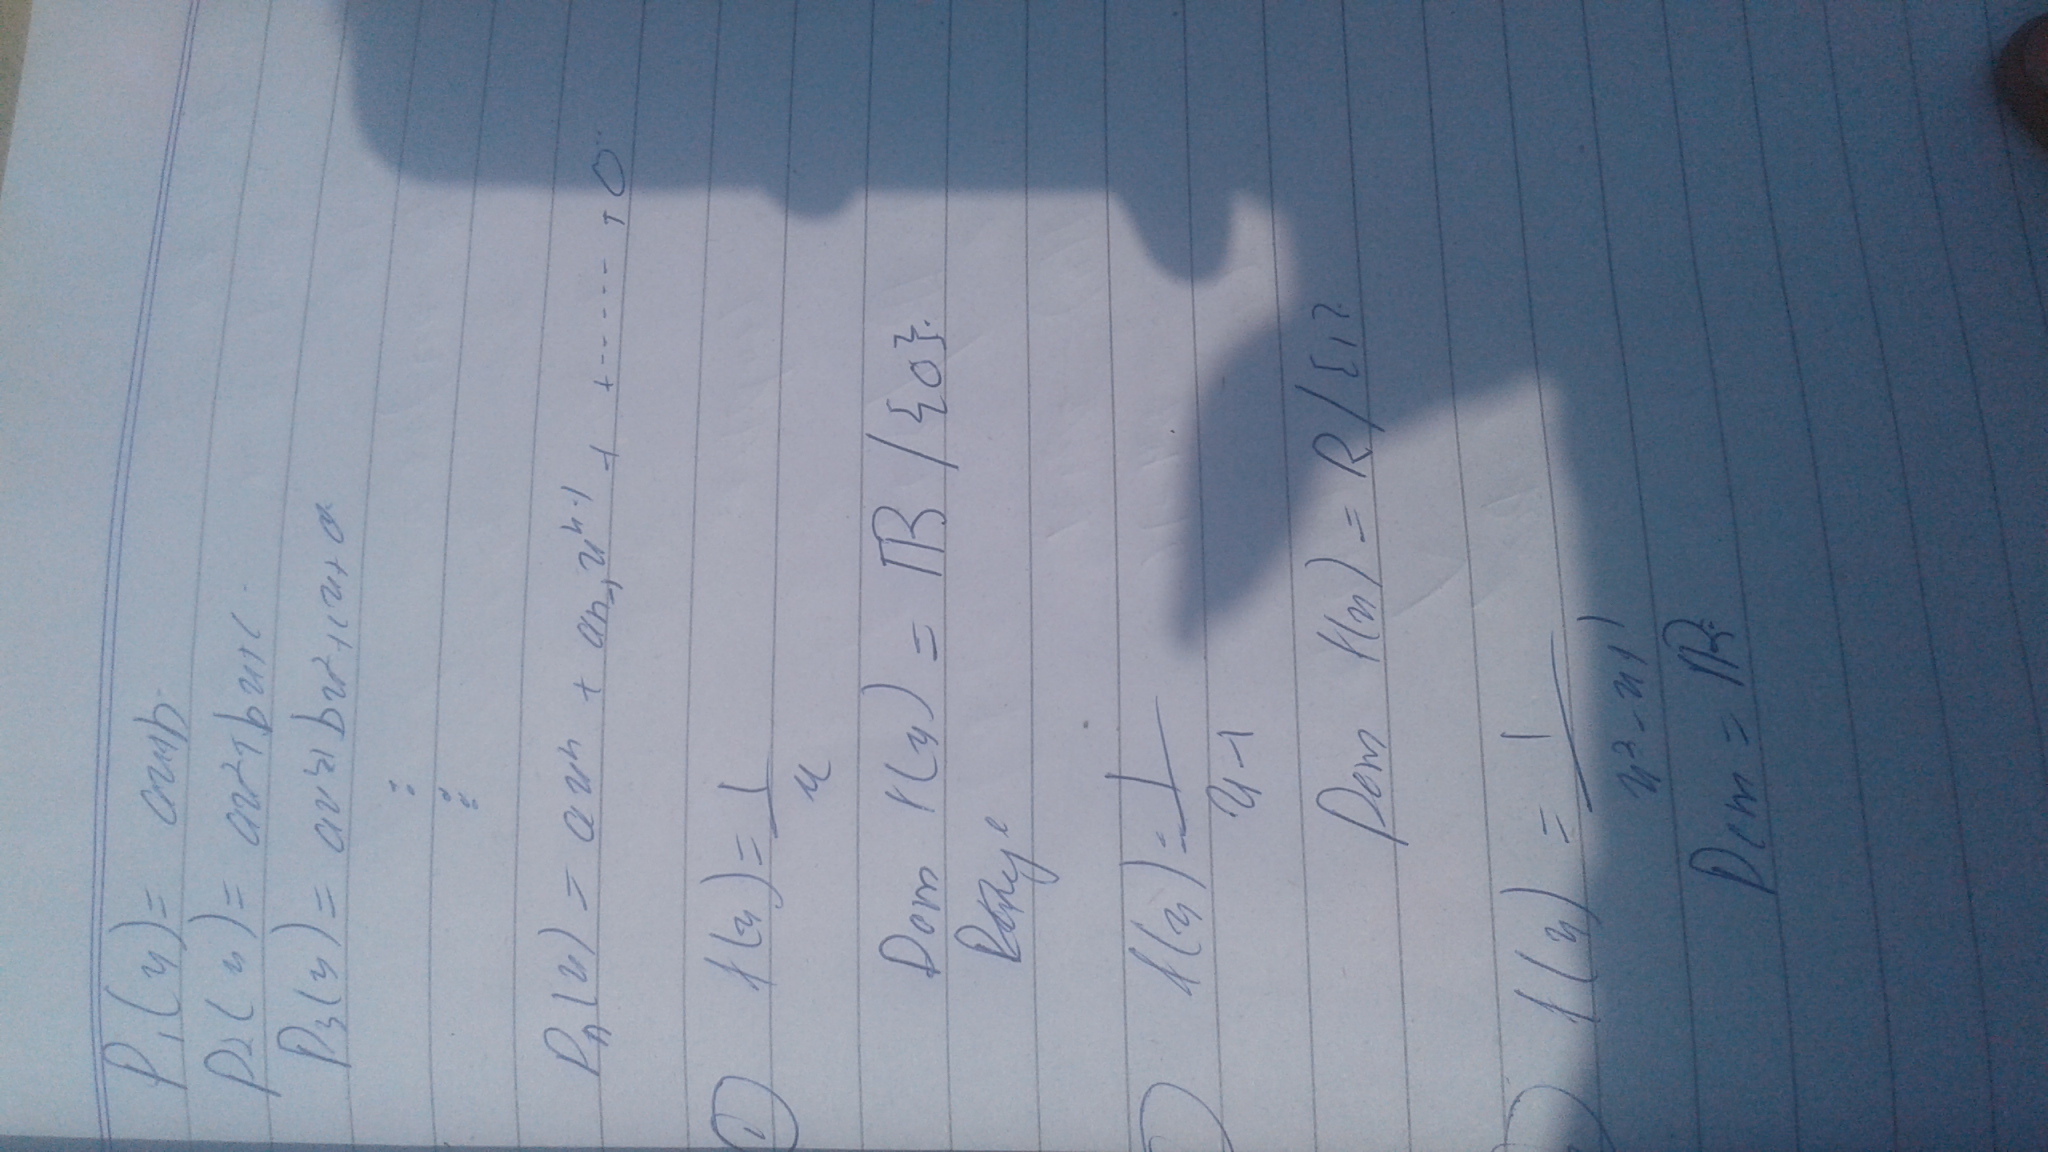 P₁(x) = ax+b
P₂(x) = ax²+bx+c
P₃(x) = ax³+bx²+cx+d
:
:
Pₙ(x) = axⁿ + aₙ₋₁xⁿ⁻¹ + +------ +0
① f(x) = 1/x
Dom f(x) = ℝ / {0}.
Range
f(x) = 1/x-1
Dom f(x) = R / {1}
f(x) = 1/x²-x+1
Dom = ℝ